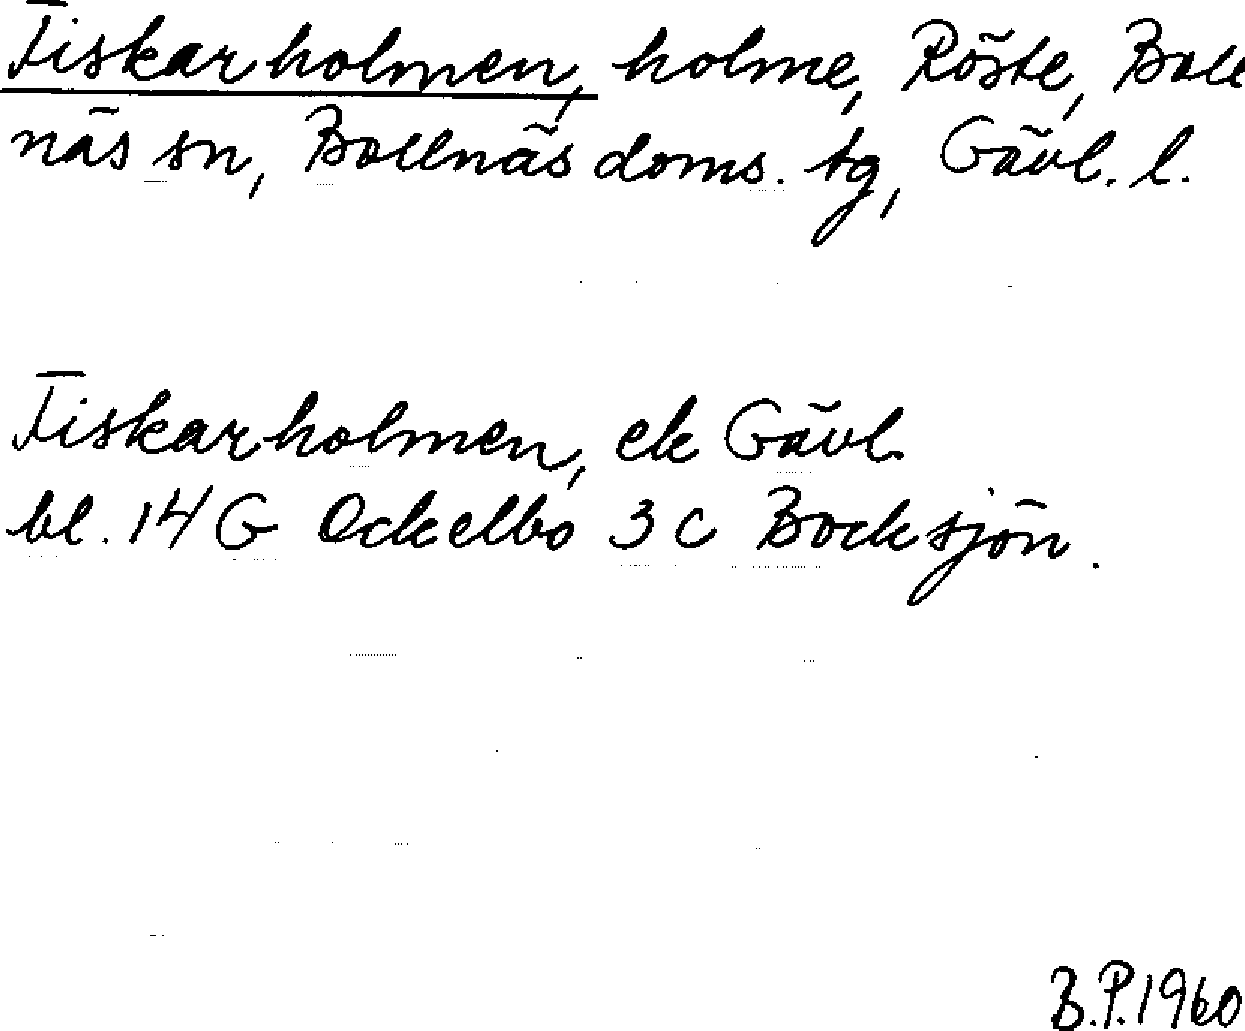 Fiskarholmen, holme, Röste, Boll
näs sn, Bollnäs doms. tg, Gävl. l.
Fiskarholmen, ek Gävl.
bl. 14 G Ockelbo 3 c Bocksjön.
B.P. 1960